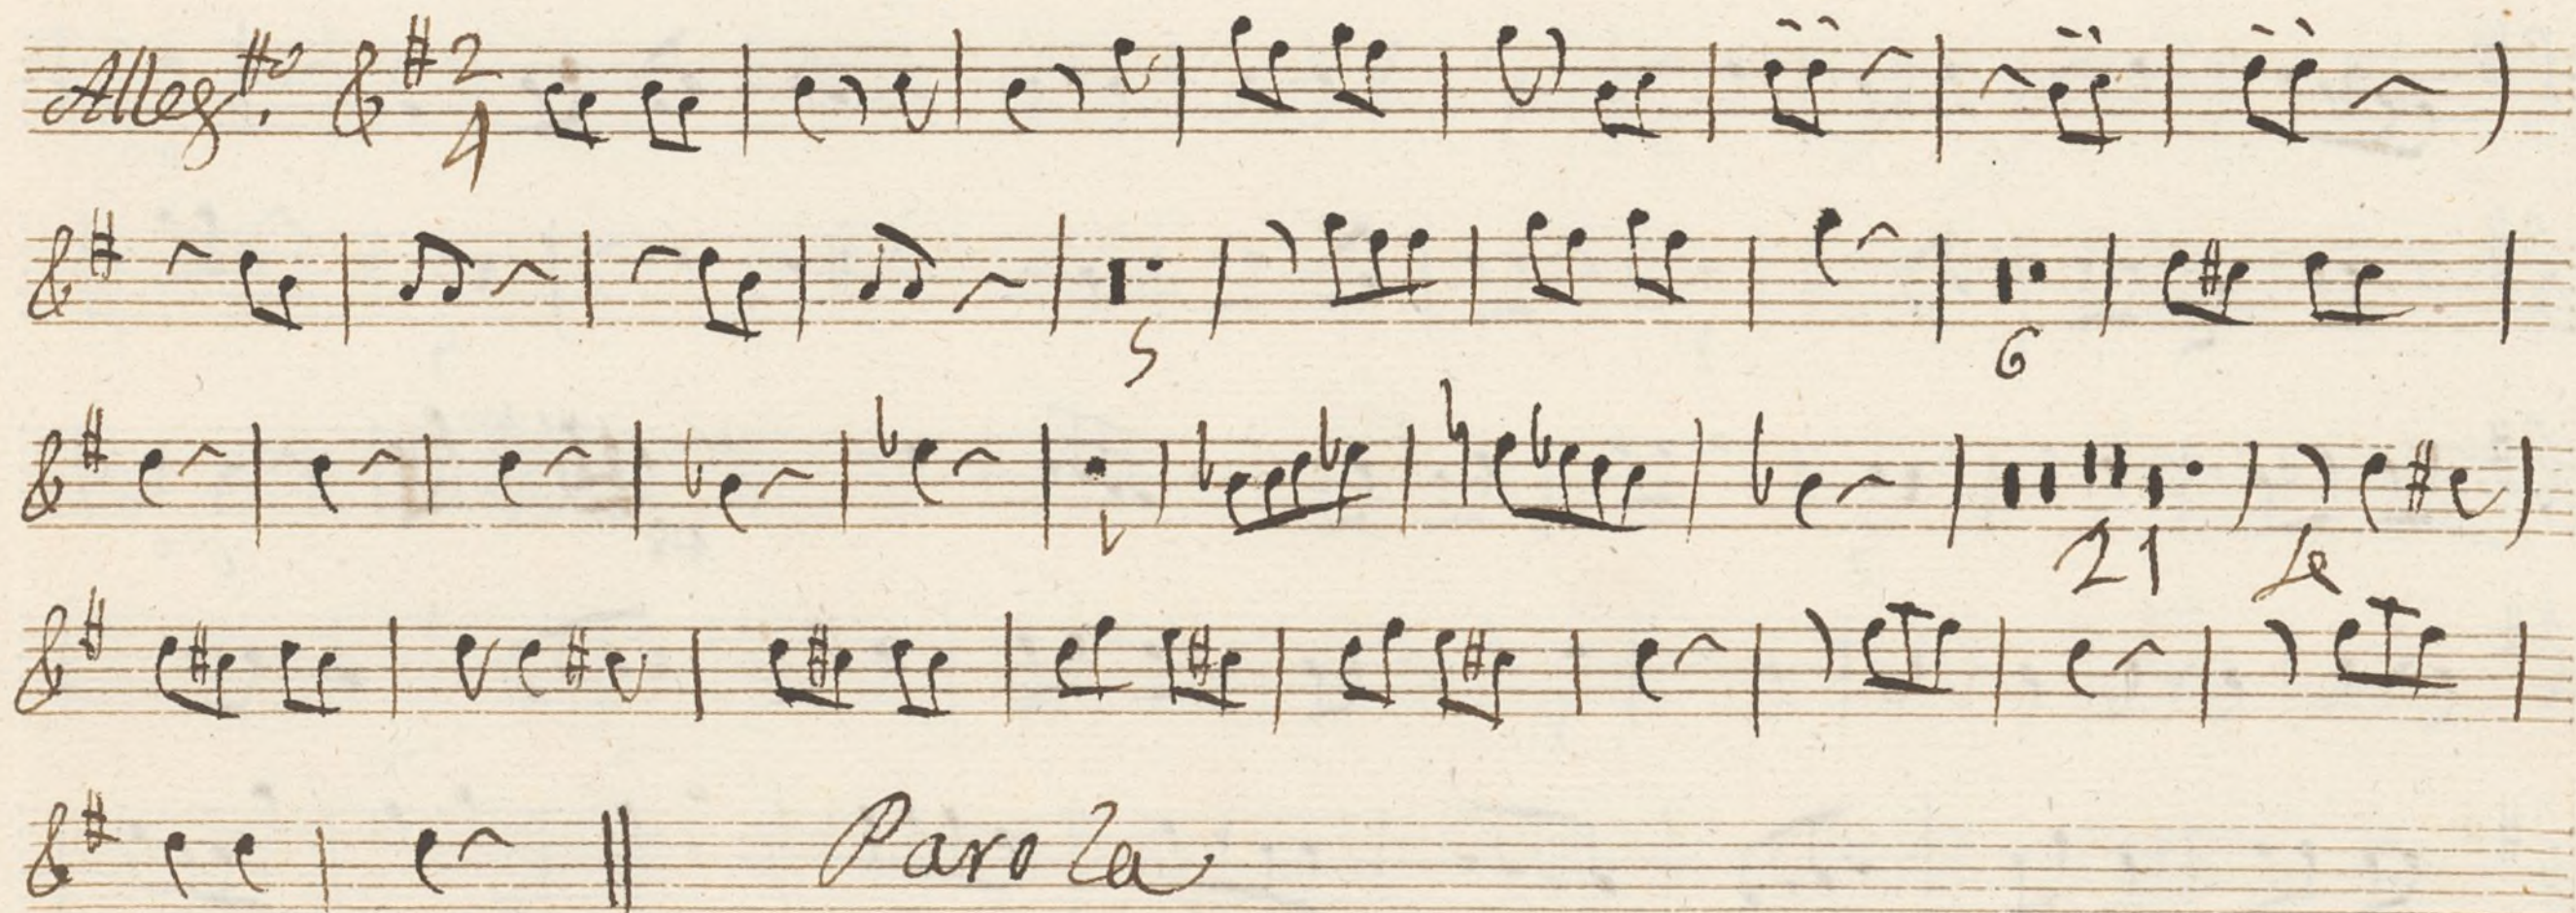 Alleg.tto 2
4
5 6
21
Parola